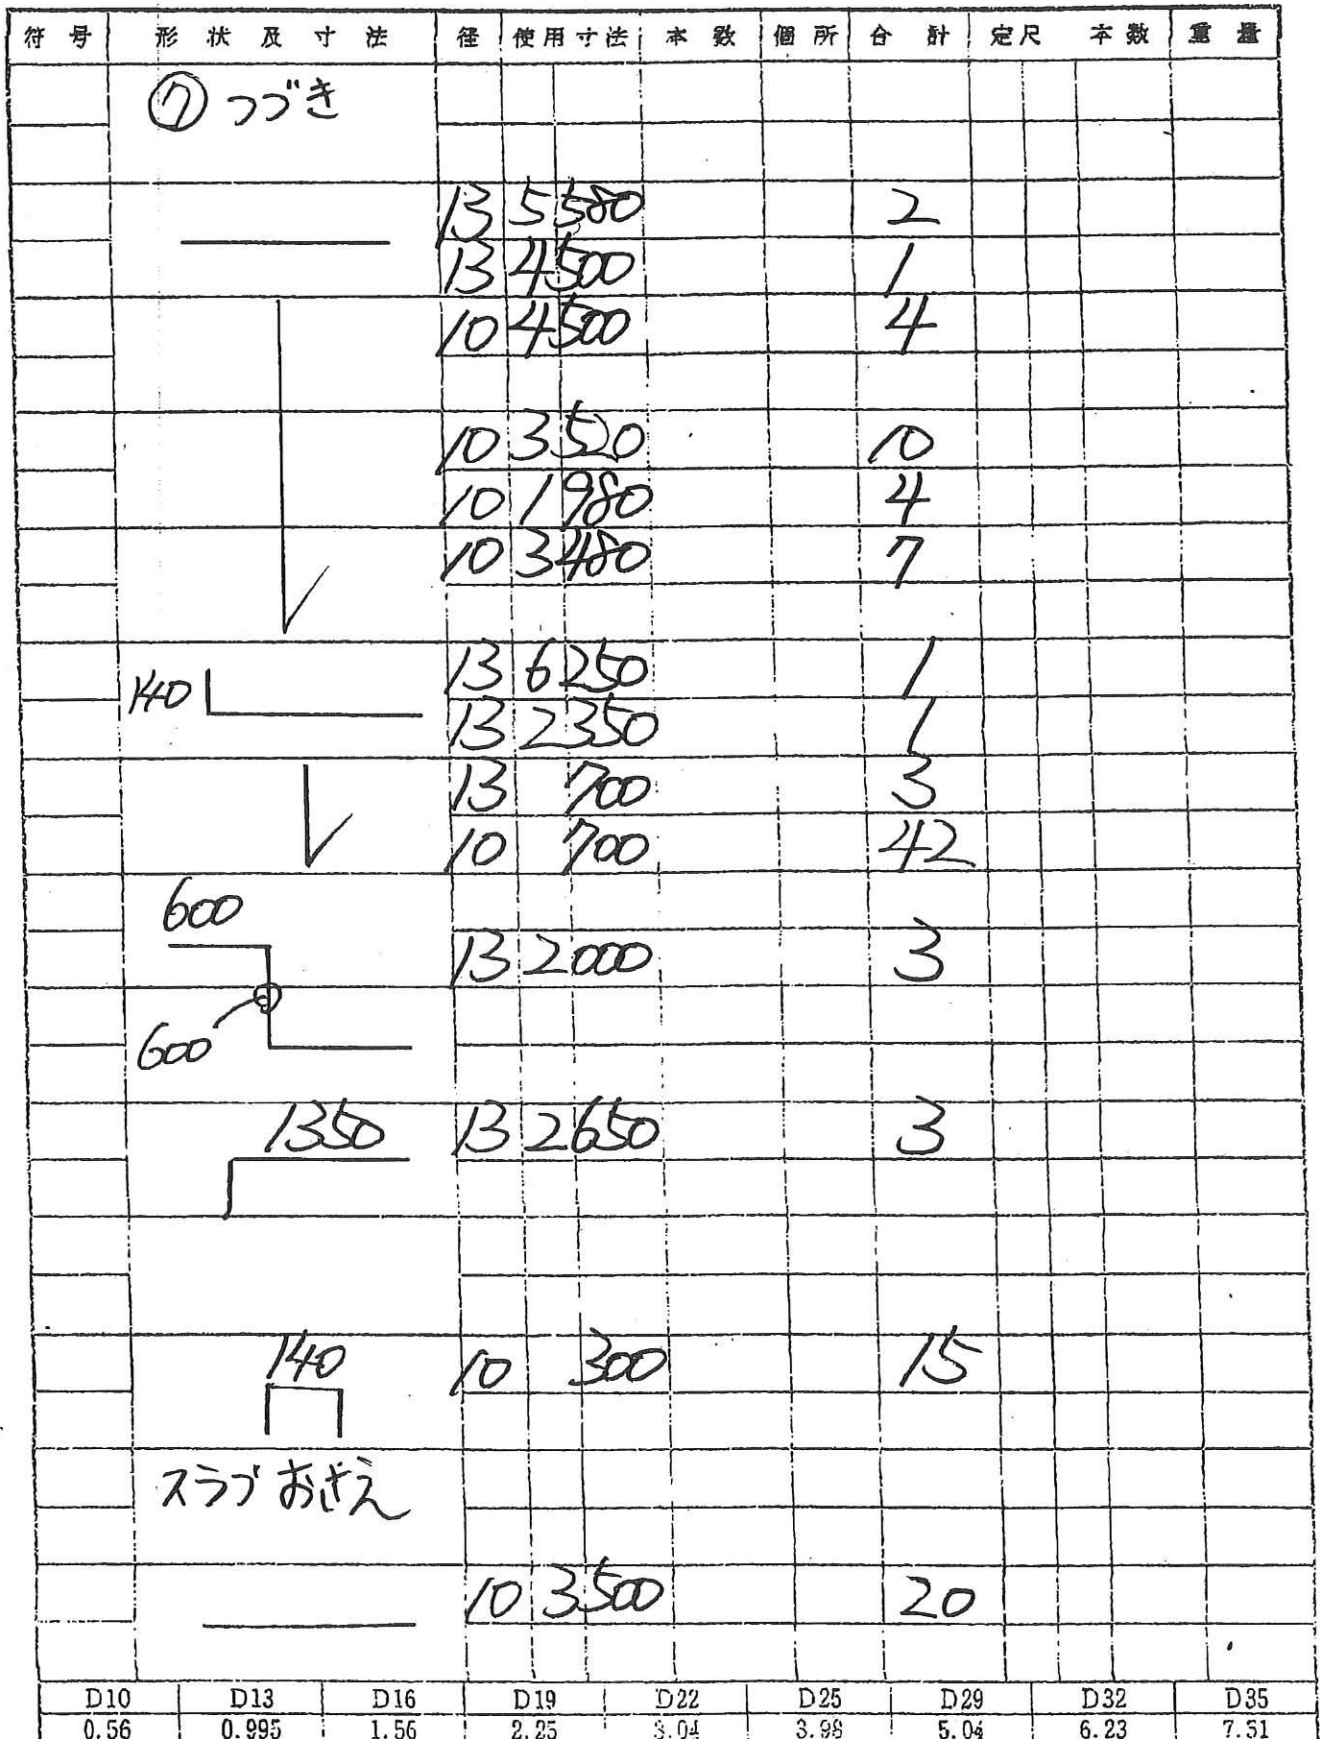 符号 形状及寸法 径 使用寸法 本数 個所 合計 定尺 本数 重量
⑦ つづき
13 5580 2
13 4500 1
10 4500 4
10 3520 10
10 1980 4
10 3480 7
13 6250 1
140
13 2350 1
13 700 3
10 700 42
600
13 2000 3
600
1350 13 2650 3
140 10 300 15
スラブおさえ
10 3500 20
D10 D13 D16 D19 D22 D25 D29 D32 D35
0.56 0.995 1.56 2.25 3.04 3.98 5.04 6.23 7.51